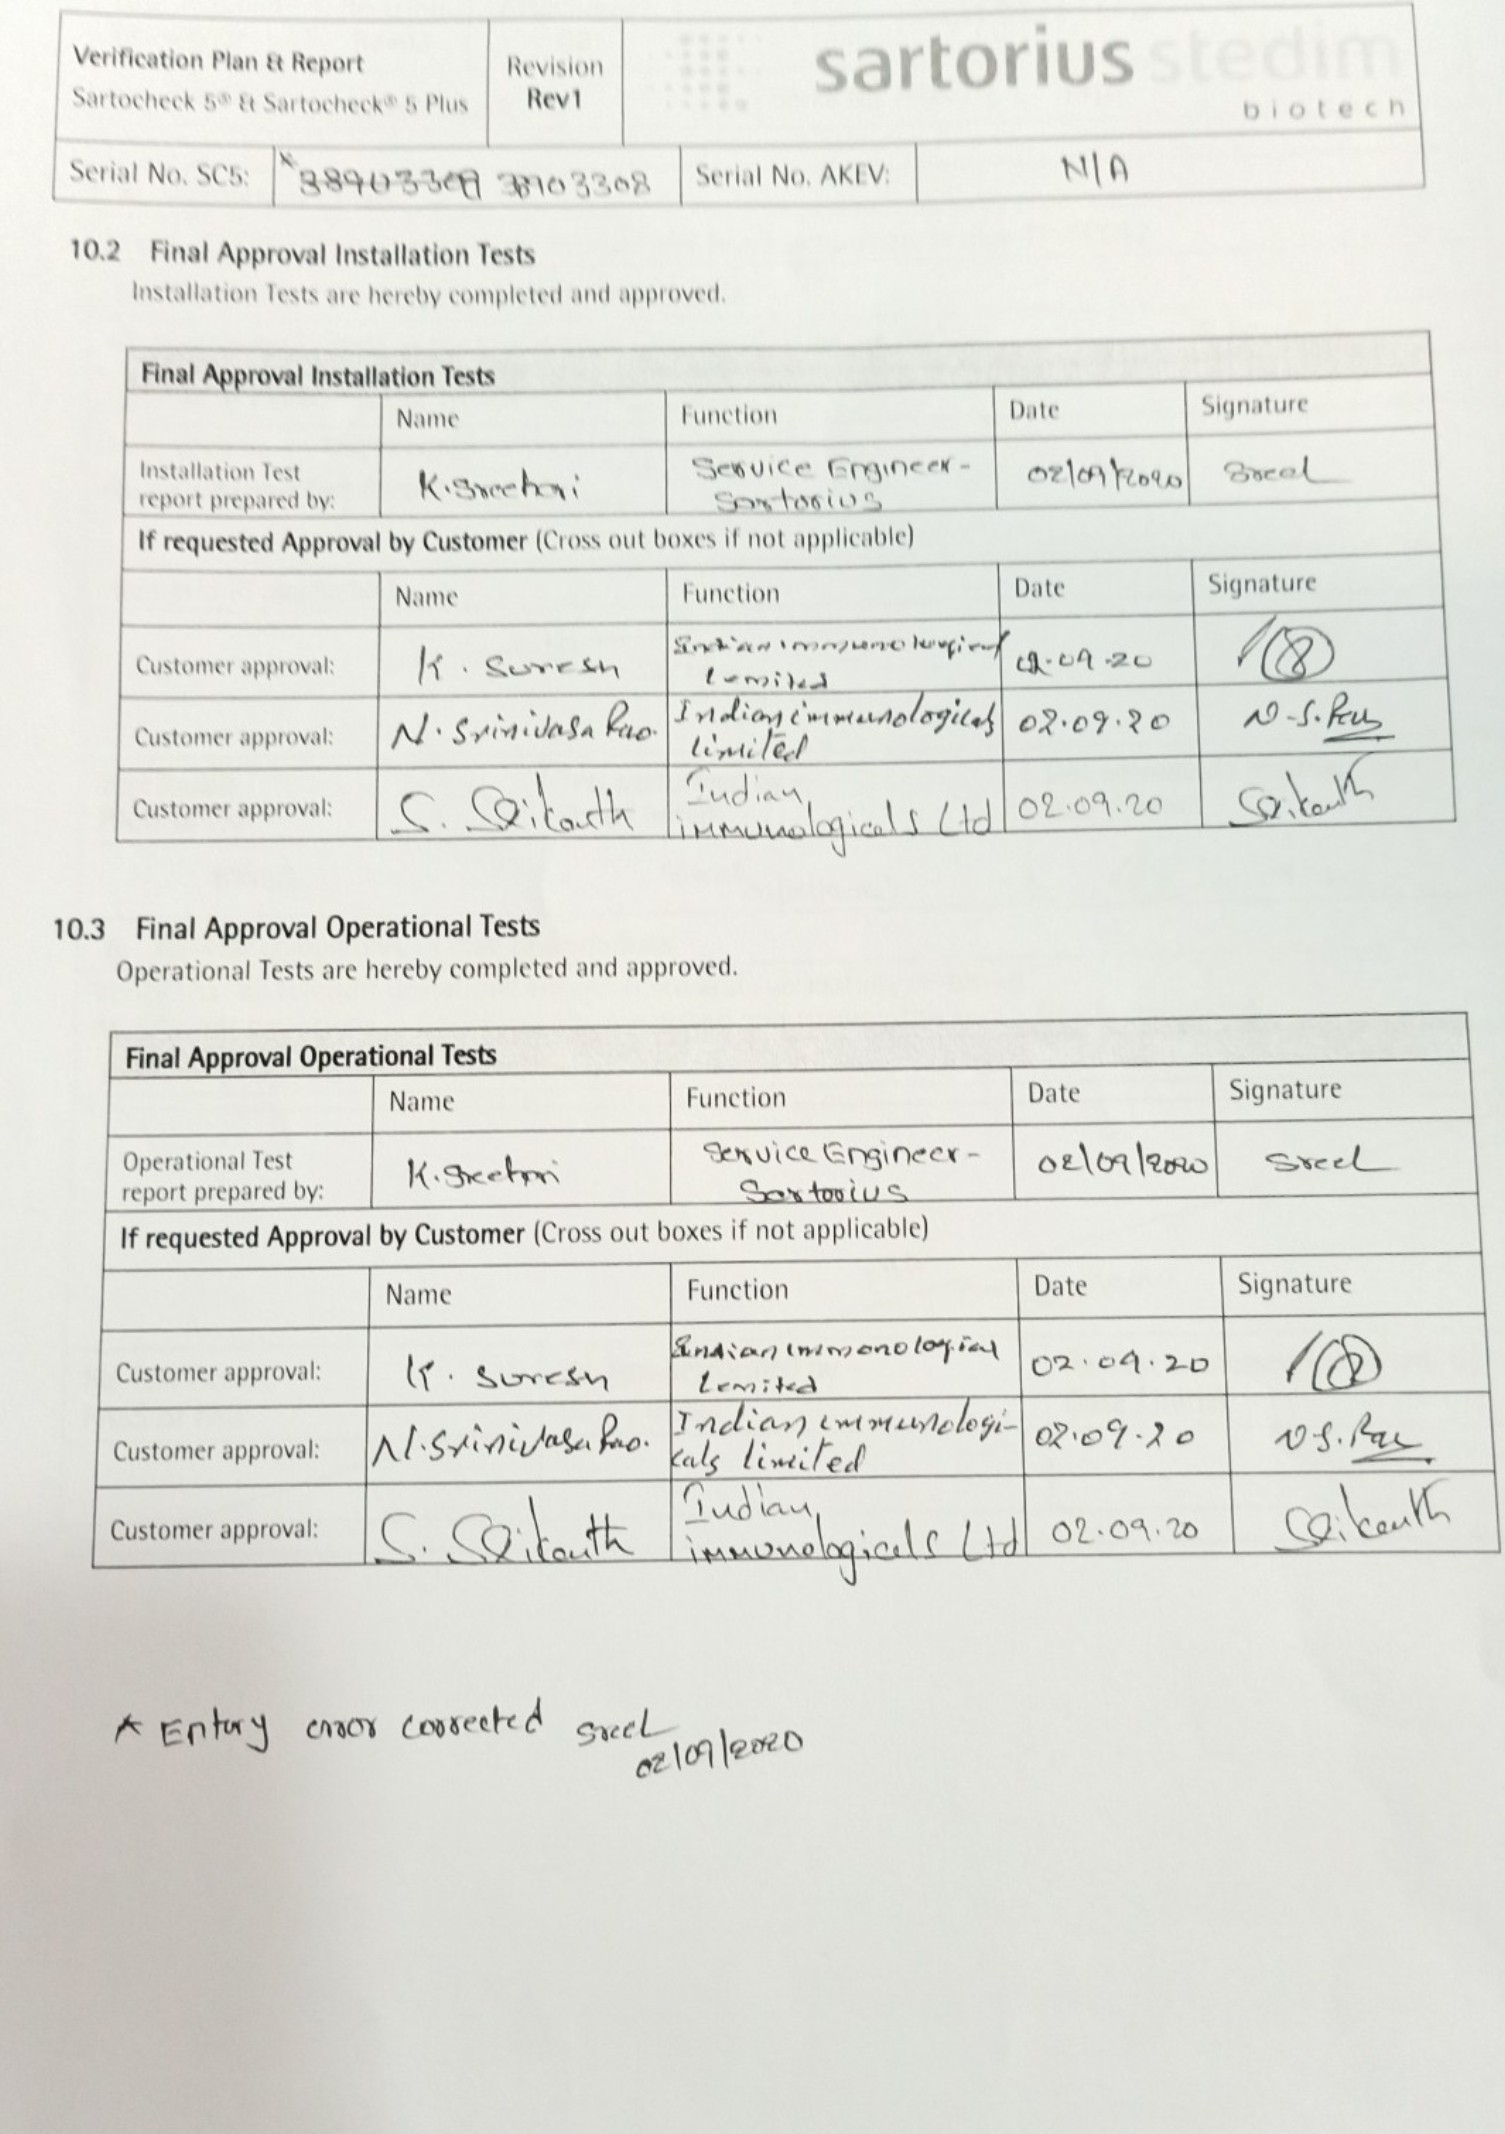 Verification Plan & Report
Sartocheck 5® & Sartocheck® 5 Plus
Revision
Rev1
sartorius stedim
biotech
Serial No. SC5:
Serial No. AKEV:
N/A
10.2 Final Approval Installation Tests
Installation Tests are hereby completed and approved.
Final Approval Installation Tests
Name Function Date Signature
Installation Test
report prepared by:
K.Sreehari
Service Engineer-
Sartorius
02/09/2020
Sreel
If requested Approval by Customer (Cross out boxes if not applicable)
Name Function Date Signature
Customer approval:
K. Suresh
Indian immunological
Limited
02.09.20
Customer approval:
N. Srinivasa Rao.
Indian immunologicals
limited
02.09.20
N.S.Rao
Customer approval:
S. Srikanth
Indian
immunologicals Ltd
02.09.20
Srikanth
10.3 Final Approval Operational Tests
Operational Tests are hereby completed and approved.
Final Approval Operational Tests
Name Function Date Signature
Operational Test
report prepared by:
K.Sreehari
Service Engineer-
Sartorius
02/09/2020
Sreel
If requested Approval by Customer (Cross out boxes if not applicable)
Name Function Date Signature
Customer approval:
K. Suresh
Indian immonological
Limited
02.09.20
Customer approval:
N.Srinivasa Rao.
Indian immunologi-
kals limited
02.09.20
N.S.Rao
Customer approval:
S. Srikanth
Indian
immunologicals Ltd
02.09.20
Srikanth
* Entry error corrected Sreel
02/09/2020